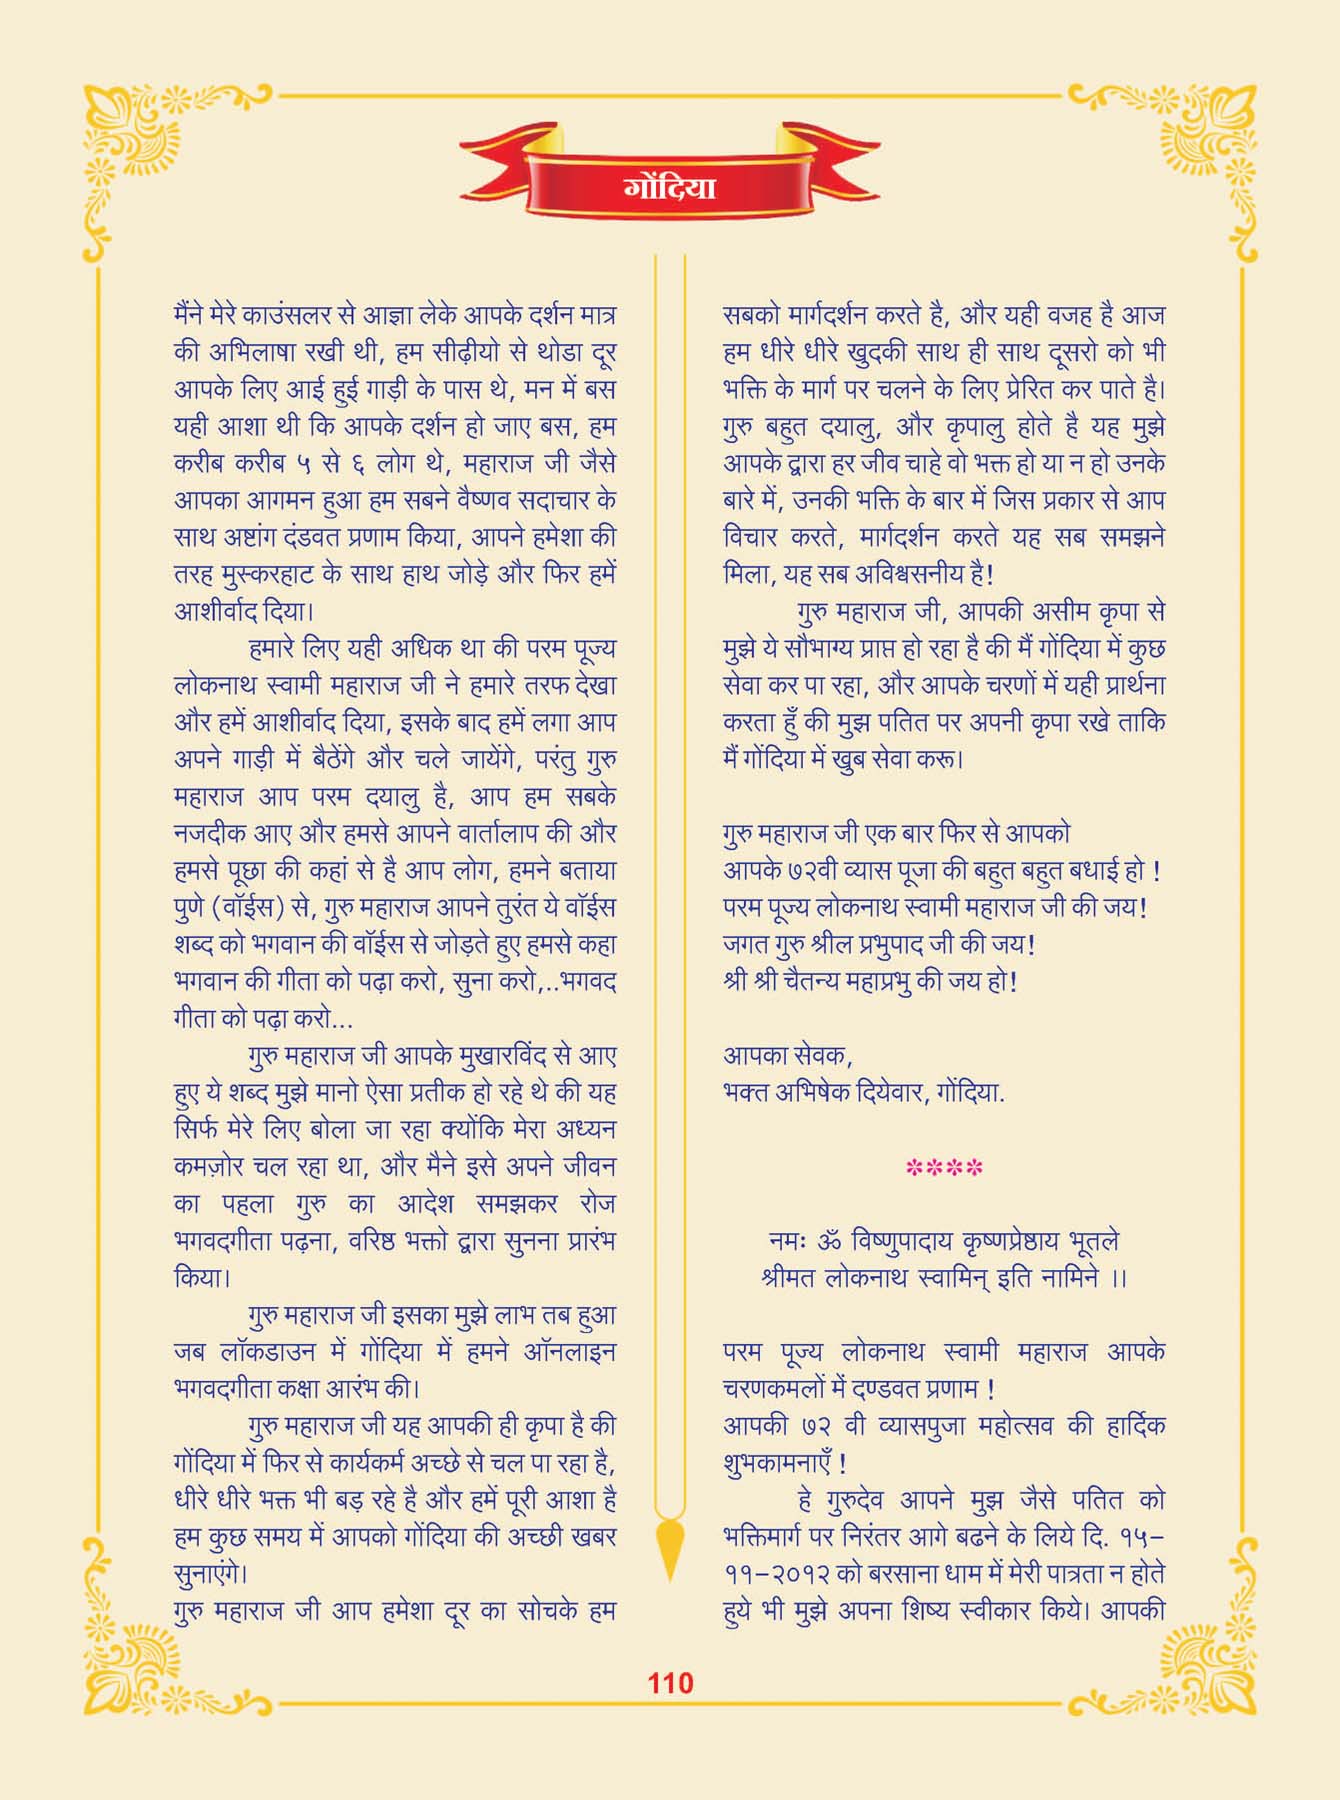 गोंदिया
मैंने मेरे काउंसलर से आज्ञा लेके आपके दर्शन मात्र
की अभिलाषा रखी थी, हम सीढ़ीयो से थोडा दूर
आपके लिए आई हुई गाड़ी के पास थे, मन में बस
यही आशा थी कि आपके दर्शन हो जाए बस, हम
करीब करीब ५ से ६ लोग थे, महाराज जी जैसे
आपका आगमन हुआ हम सबने वैष्णव सदाचार के
साथ अष्टांग दंडवत प्रणाम किया, आपने हमेशा की
तरह मुस्करहाट के साथ हाथ जोड़े और फिर हमें
आशीर्वाद दिया।
हमारे लिए यही अधिक था की परम पूज्य
लोकनाथ स्वामी महाराज जी ने हमारे तरफ देखा
और हमें आशीर्वाद दिया, इसके बाद हमें लगा आप
अपने गाड़ी में बैठेंगे और चले जायेंगे, परंतु गुरु
महाराज आप परम दयालु है, आप हम सबके
नजदीक आए और हमसे आपने वार्तालाप की और
हमसे पूछा की कहां से है आप लोग, हमने बताया
पुणे (वॉईस) से, गुरु महाराज आपने तुरंत ये वॉईस
शब्द को भगवान की वॉईस से जोड़ते हुए हमसे कहा
भगवान की गीता को पढ़ा करो, सुना करो,..भगवद
गीता को पढ़ा करो...
गुरु महाराज जी आपके मुखारविंद से आए
हुए ये शब्द मुझे मानो ऐसा प्रतीक हो रहे थे की यह
सिर्फ मेरे लिए बोला जा रहा क्योंकि मेरा अध्यन
कमज़ोर चल रहा था, और मैने इसे अपने जीवन
का पहला गुरु का आदेश समझकर रोज
भगवदगीता पढ़ना, वरिष्ठ भक्तो द्वारा सुनना प्रारंभ
किया।
गुरु महाराज जी इसका मुझे लाभ तब हुआ
जब लॉकडाउन में गोंदिया में हमने ऑनलाइन
भगवदगीता कक्षा आरंभ की।
गुरु महाराज जी यह आपकी ही कृपा है की
गोंदिया में फिर से कार्यकर्म अच्छे से चल पा रहा है,
धीरे धीरे भक्त भी बड़ रहे है और हमें पूरी आशा है
हम कुछ समय में आपको गोंदिया की अच्छी खबर
सुनाएंगे।
गुरु महाराज जी आप हमेशा दूर का सोचके हम
सबको मार्गदर्शन करते है, और यही वजह है आज
हम धीरे धीरे खुदकी साथ ही साथ दूसरो को भी
भक्ति के मार्ग पर चलने के लिए प्रेरित कर पाते है।
गुरु बहुत दयालु, और कृपालु होते है यह मुझे
आपके द्वारा हर जीव चाहे वो भक्त हो या न हो उनके
बारे में, उनकी भक्ति के बार में जिस प्रकार से आप
विचार करते, मार्गदर्शन करते यह सब समझने
मिला, यह सब अविश्वसनीय है!
गुरु महाराज जी, आपकी असीम कृपा से
मुझे ये सौभाग्य प्राप्त हो रहा है की मैं गोंदिया में कुछ
सेवा कर पा रहा, और आपके चरणों में यही प्रार्थना
करता हुँ की मुझ पतित पर अपनी कृपा रखे ताकि
मैं गोंदिया में खुब सेवा करू।
गुरु महाराज जी एक बार फिर से आपको
आपके ७२वी व्यास पूजा की बहुत बहुत बधाई हो !
परम पूज्य लोकनाथ स्वामी महाराज जी की जय!
जगत गुरु श्रील प्रभुपाद जी की जय!
श्री श्री चैतन्य महाप्रभु की जय हो!
आपका सेवक,
भक्त अभिषेक दियेवार, गोंदिया.
****
नमः ॐ विष्णुपादाय कृष्णप्रेष्ठाय भूतले
श्रीमत लोकनाथ स्वामिन् इति नामिने ।।
परम पूज्य लोकनाथ स्वामी महाराज आपके
चरणकमलों में दण्डवत प्रणाम !
आपकी ७२ वी व्यासपुजा महोत्सव की हार्दिक
शुभकामनाएँ !
हे गुरुदेव आपने मुझ जैसे पतित को
भक्तिमार्ग पर निरंतर आगे बढने के लिये दि. १५-
११-२०१२ को बरसाना धाम में मेरी पात्रता न होते
हुये भी मुझे अपना शिष्य स्वीकार किये। आपकी
110